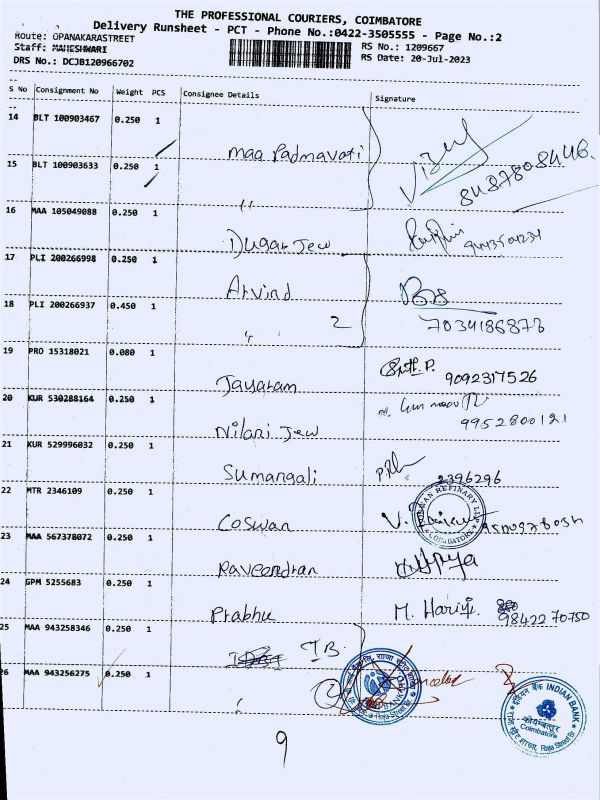 THE PROFESSIONAL COURIERS, COIMBATORE
Delivery Runsheet - PCT - Phone No.:0422-3505555 - Page No.:2
Route: OPANAKARASTREET
RS No.: 1209667
Staff: MAHESHWARI
RS Date: 20-Jul-2023
DRS No.: DCJB120966702
S No Consignment No Weight PCS Consignee Details Signature
14 BLT 100903467 0.250 1
maa Padmavati
8437808446.
15 BLT 100903633 0.250 1
"
16 MAA 105049088 0.250 1
Dugar Jew
17 PLI 200266998 0.250 1
Arvind
18 PLI 200266937 0.450 1
" 2
7034186873
19 PRO 15318021 0.080 1
Jayaram
9092317526
20 KUR 530288164 0.250 1
Nilani Jew
9952800121
21 KUR 529996032 0.250 1
Sumangali
2396296
22 MTR 2346109 0.250 1
Coswan
REFINARY LLP
COIMBATORE
23 MAA 567378072 0.250 1
Raveendran
24 GPM 5255683 0.250 1
Prabhu
M. Harij. 98422 70750
25 MAA 943258346 0.250 1
IB
26 MAA 943256275 0.250 1
"
2
इंडियन बैंक INDIAN BANK
कोयम्बत्तूर
Coimbatore
Raja Street Br
9